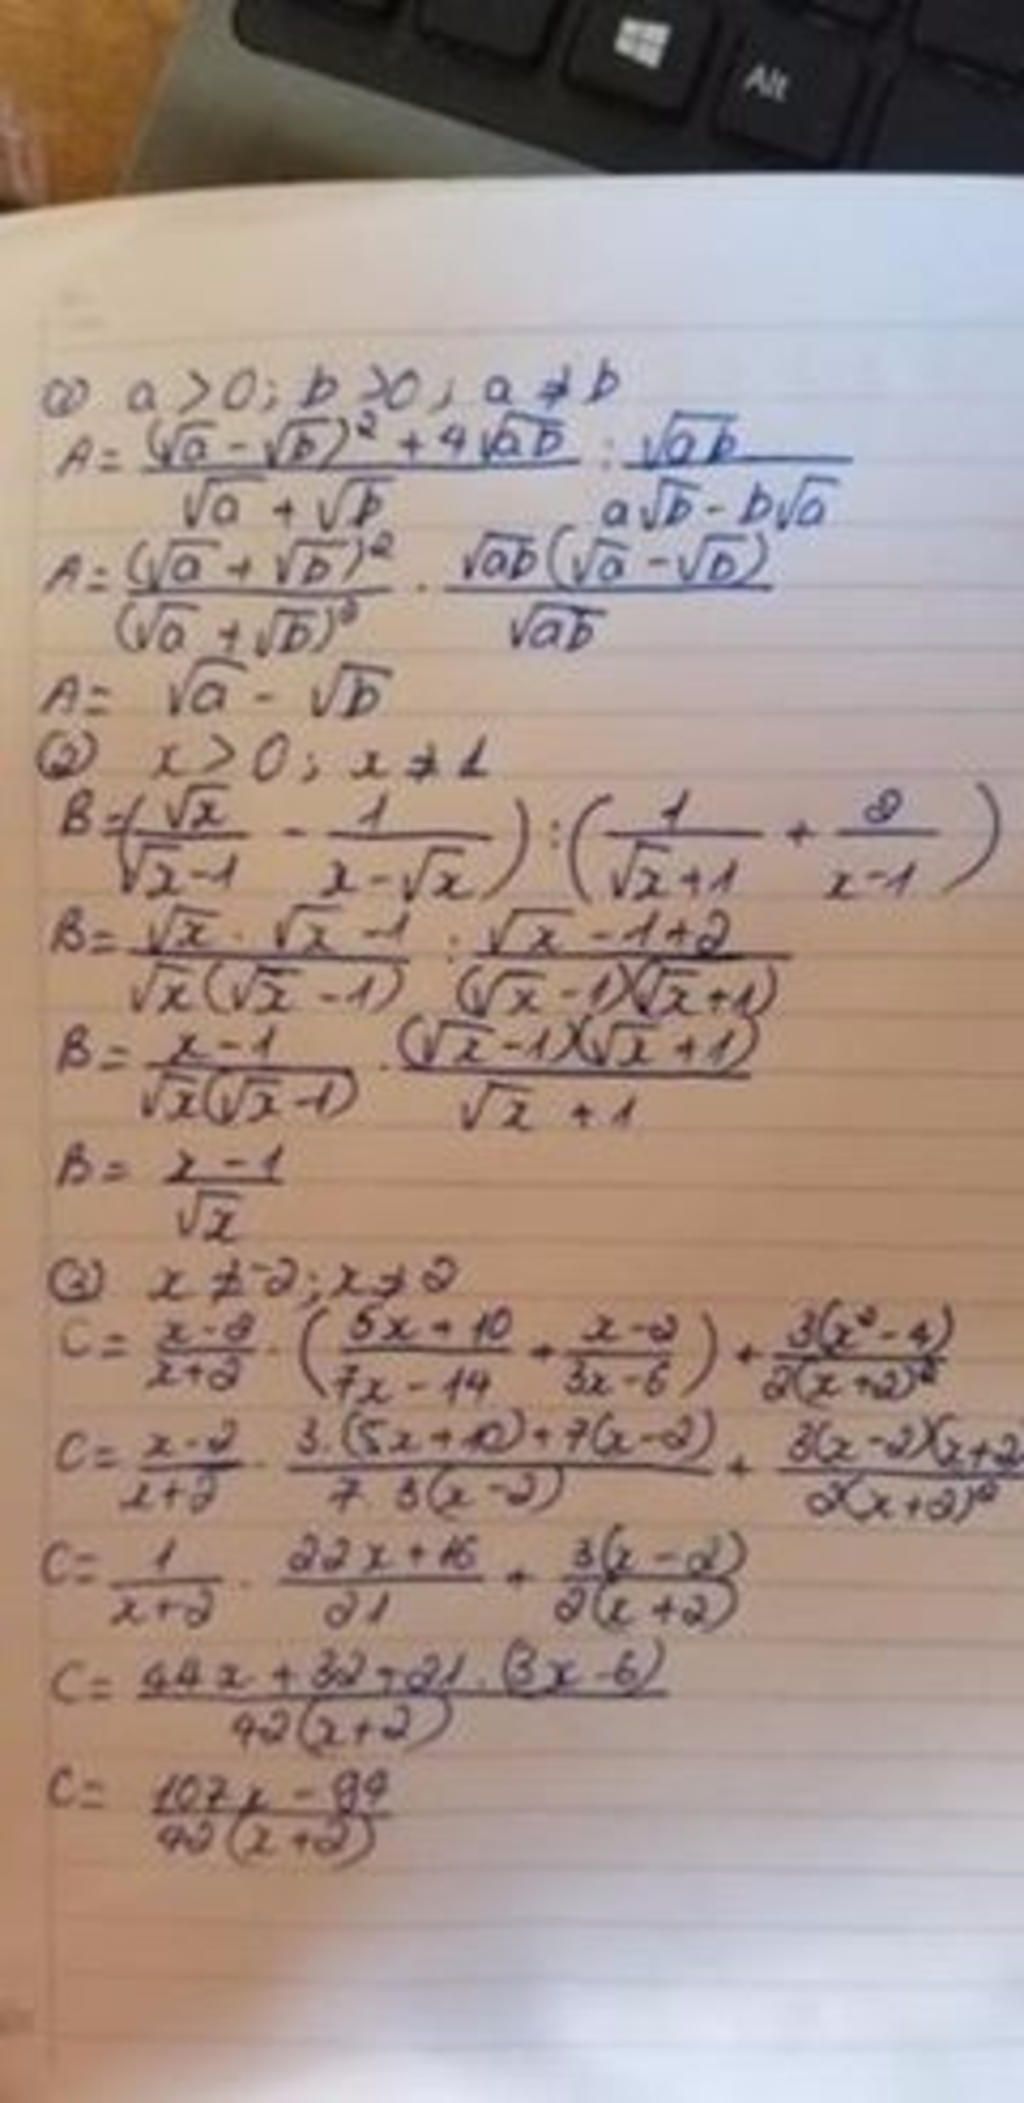 Alt
① a > 0; b > 0; a ≠ b
A = ((√a - √b)² + 4√ab)/(√a + √b) : √ab/(a√b - b√a)
A = (√a + √b)²/(√a + √b)² · √ab(√a - √b)/√ab
A = √a - √b
② x > 0; x ≠ 1
B = (√x/(√x-1) - 1/(x-√x)) : (1/(√x+1) + 2/(x-1))
B = (√x · √x - 1)/(√x(√x - 1)) : (√x - 1 + 2)/((√x - 1)(√x + 1))
B = (x - 1)/(√x(√x - 1)) · (√x - 1)(√x + 1)/(√x + 1)
B = (x - 1)/√x
③ x ≠ -2; x ≠ 2
C = (x-2)/(x+2) · ((5x + 10)/(7x - 14) + (x-2)/(3x-6)) + 3(x² - 4)/(2(x+2)²)
C = (x-2)/(x+2) · (3.(5x+10) + 7(x-2))/(7.3(x-2)) + 3(x-2)(x+2/(2(x+2)²)
C = 1/(x+2) · (22x + 16)/21 + 3(x-2)/(2(x+2))
C = (44x + 32 + 21.(3x-6))/(42(x+2))
C = (107x - 94)/(42(x+2))